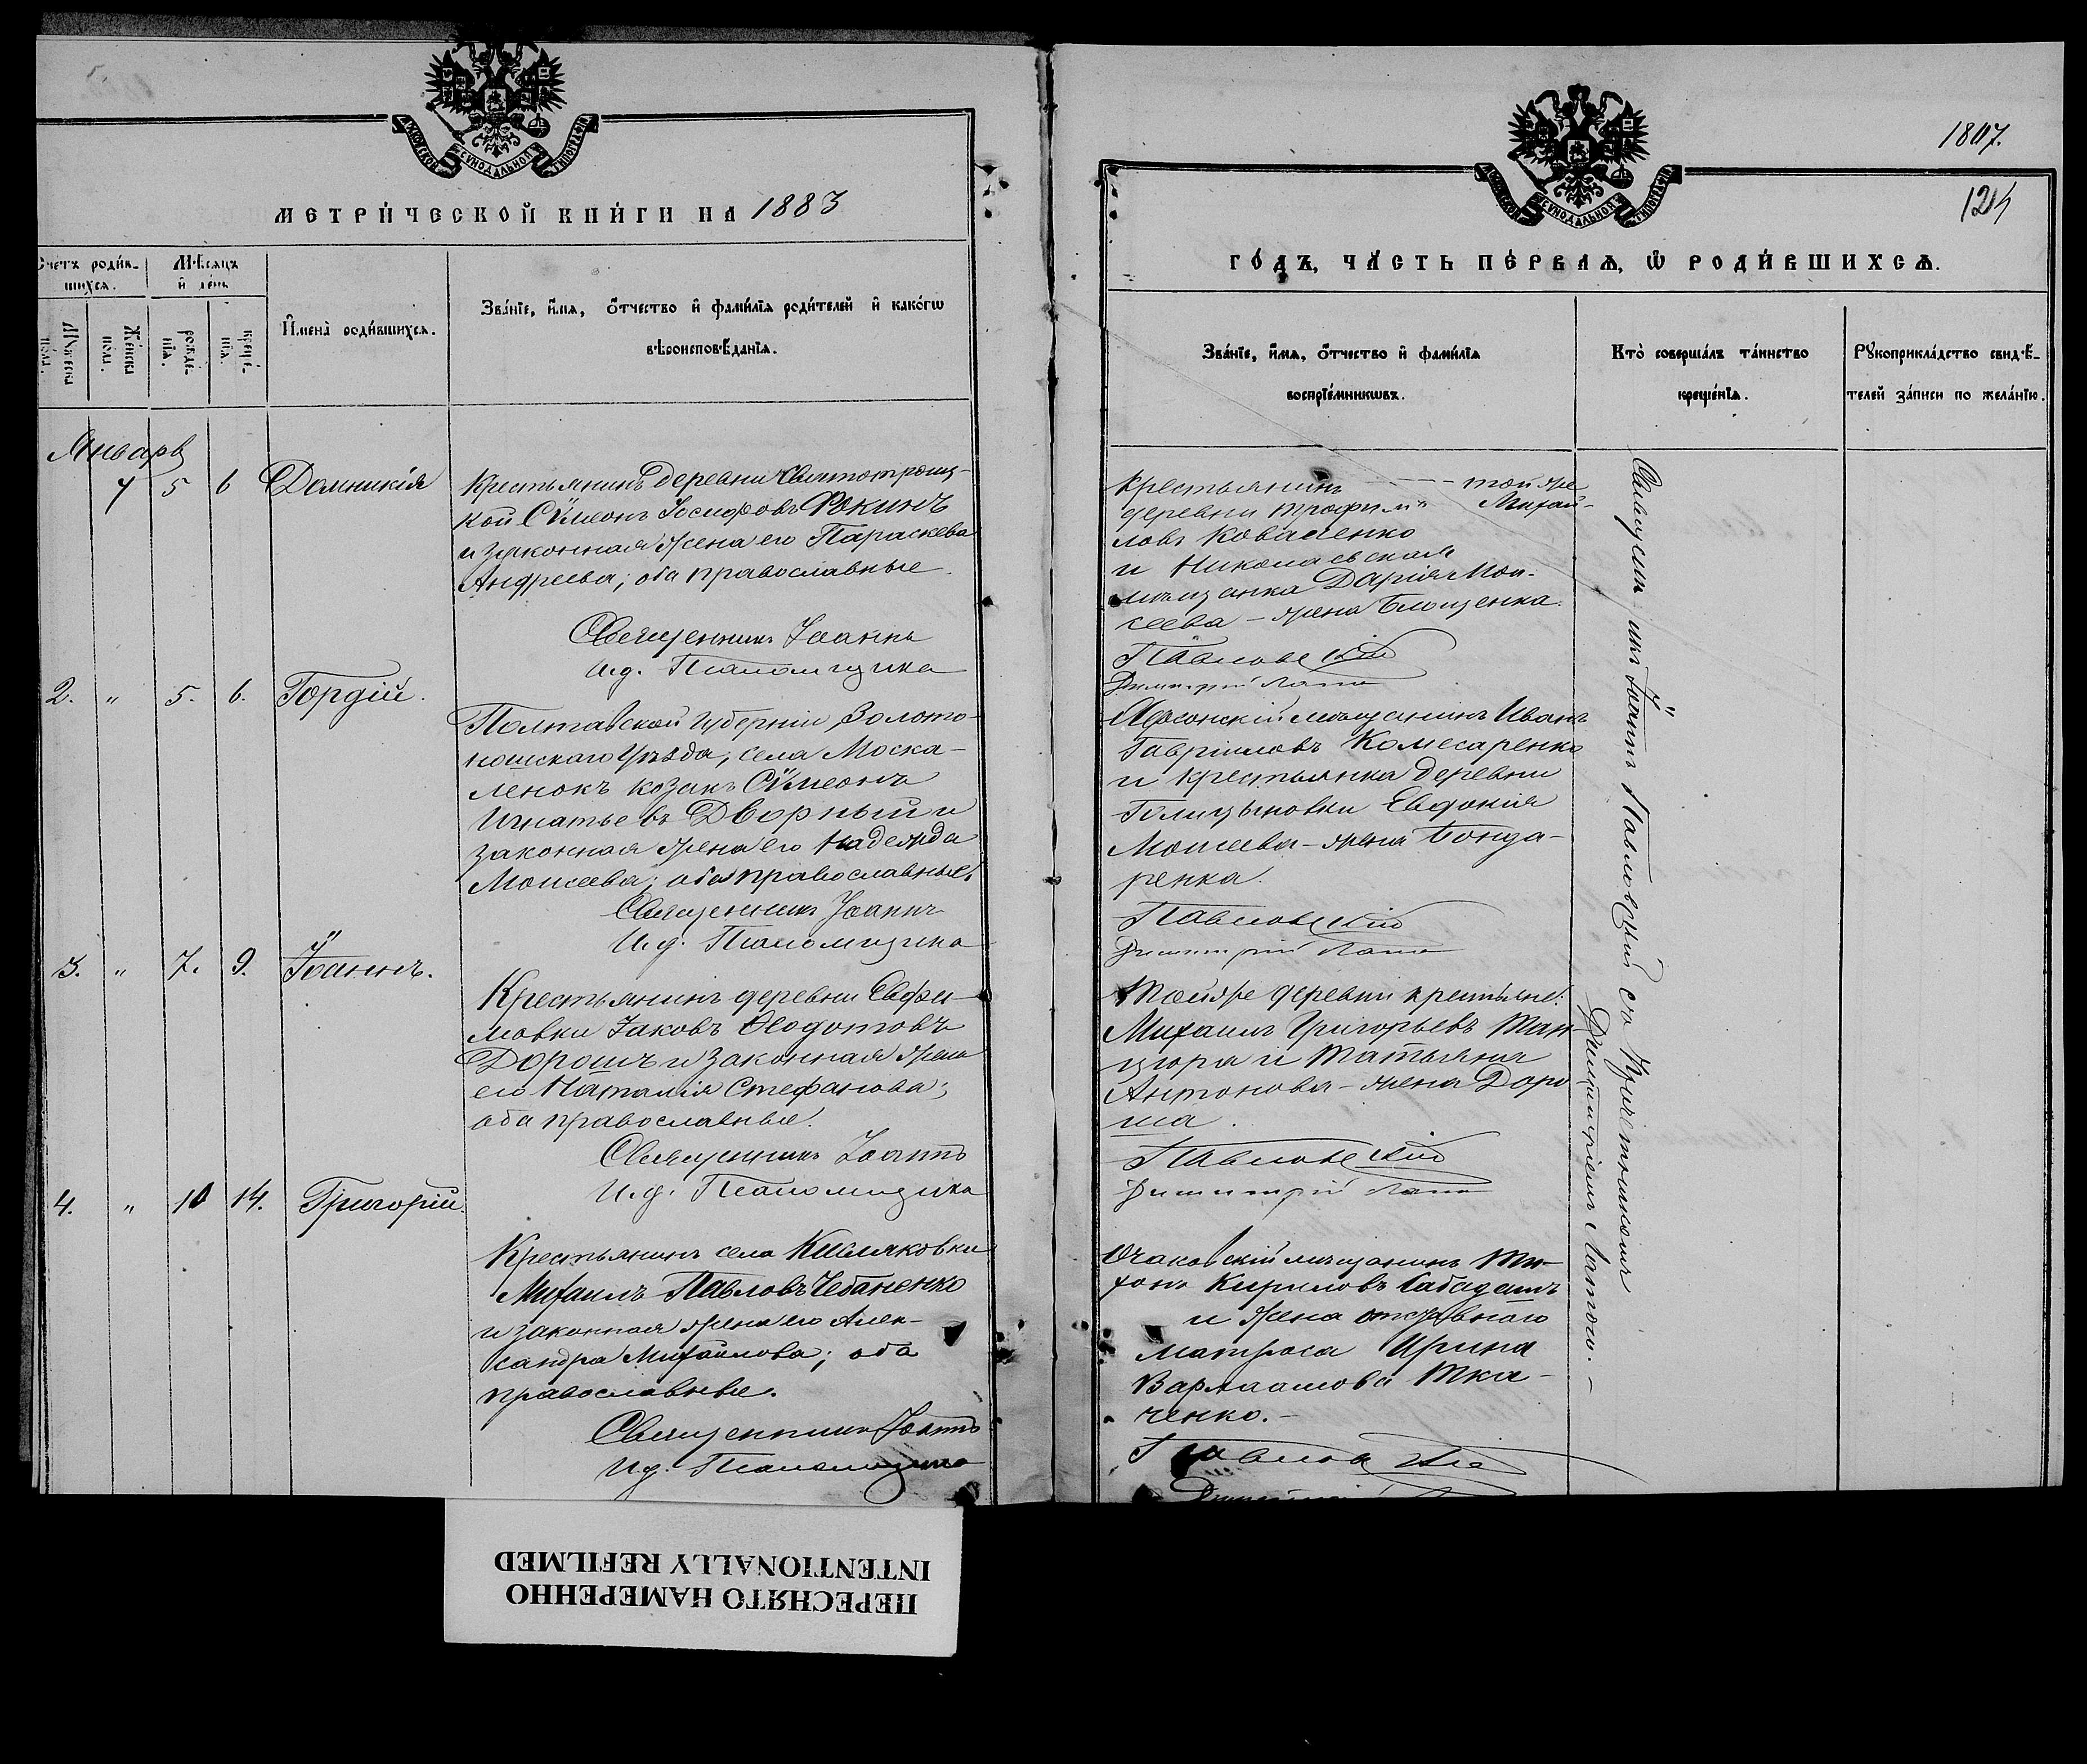 МЕТРИ́ЧЕСКОЙ КНИ́ГИ НА 1883
Мѣсяцъ
и день
Имена̀ роди́вшихся.
Зва́нїе, и́мя, ѻ́тчество и фами́лїя роди́телей и како́гѡ
вѣроисповѣ́данїя.
Январь
5 6 Домникія
Крестьянинъ деревни Святотроиц-
кой Сѵмеонъ Іосифовъ
и законная жена его Параскева
Андреева; оба православные.
Священникъ Іоаннъ
И.д. Псаломщика
2. " 5. 6. Гордій.
Полтавской губерніи, Золото-
ношскаго уѣзда, села Моска-
ленокъ козакъ Сѵмеонъ
Игнатьевъ Дворный и
законная жена его Надежда
Моисеева; оба православные.
Священникъ Іоаннъ
И.д. Псаломщика
3. " 7. 9. Іоаннъ.
Крестьянинъ деревни Евфи-
мовки Іаковъ Ѳеодотовъ
Дорошъ и законная жена
его Наталія Стефанова;
оба православные.
Священникъ Іоаннъ
И.д. Псаломщика
4. " 10 14. Григорій.
Крестьянинъ села Кисляковки
Михаилъ Павловъ Чебаненко
и законная жена его Алек-
сандра Михайлова; оба
православные.
Священникъ Іоаннъ
И.д. Псаломщика
124
ГО́ДЪ, ЧА́СТЬ ПЕ́РВАѦ, Ѡ РОДИ́ВШИХСѦ.
Зва́нїе, и́мя, ѻ́тчество и фами́лїя
воспрїе́мникѡвъ.
Кто̀ соверша́лъ та́инство
креще́нїя.
Рꙋкоприкла́дство свидѣ́-
телей за́писи по жела́нїю.
Крестьянинъ ---- той же
деревни Трофимъ Михай-
ловъ Коваленко
и Николаевская
мѣщанка Дарія Мои-
сеева - жена
Павловскій
Димитрій
Херсонскій мѣщанинъ Иванъ
Гавріиловъ Комесаренко
и крестьянка деревни
Голицыновки Евдокія
Моисеева - жена Бонда-
ренка.
Павловскій
Димитрій
Той же деревни крестьяне:
Михаилъ Григорьевъ Ман-
цюра и Татьяна
Антонова - жена Доро
ша.
Павловскій
Димитрій
Очаковскій мѣщанинъ Ти-
хонъ Кириловъ Сабадашъ
и жена отставнаго
матроса Ирина
Варлаамова Тка-
ченко. -
Павловскій
Священникъ Іоаннъ Павловскій съ
Димитріемъ
ПЕРЕСНЯТО НАМЕРЕННО
INTENTIONALLY REFILMED